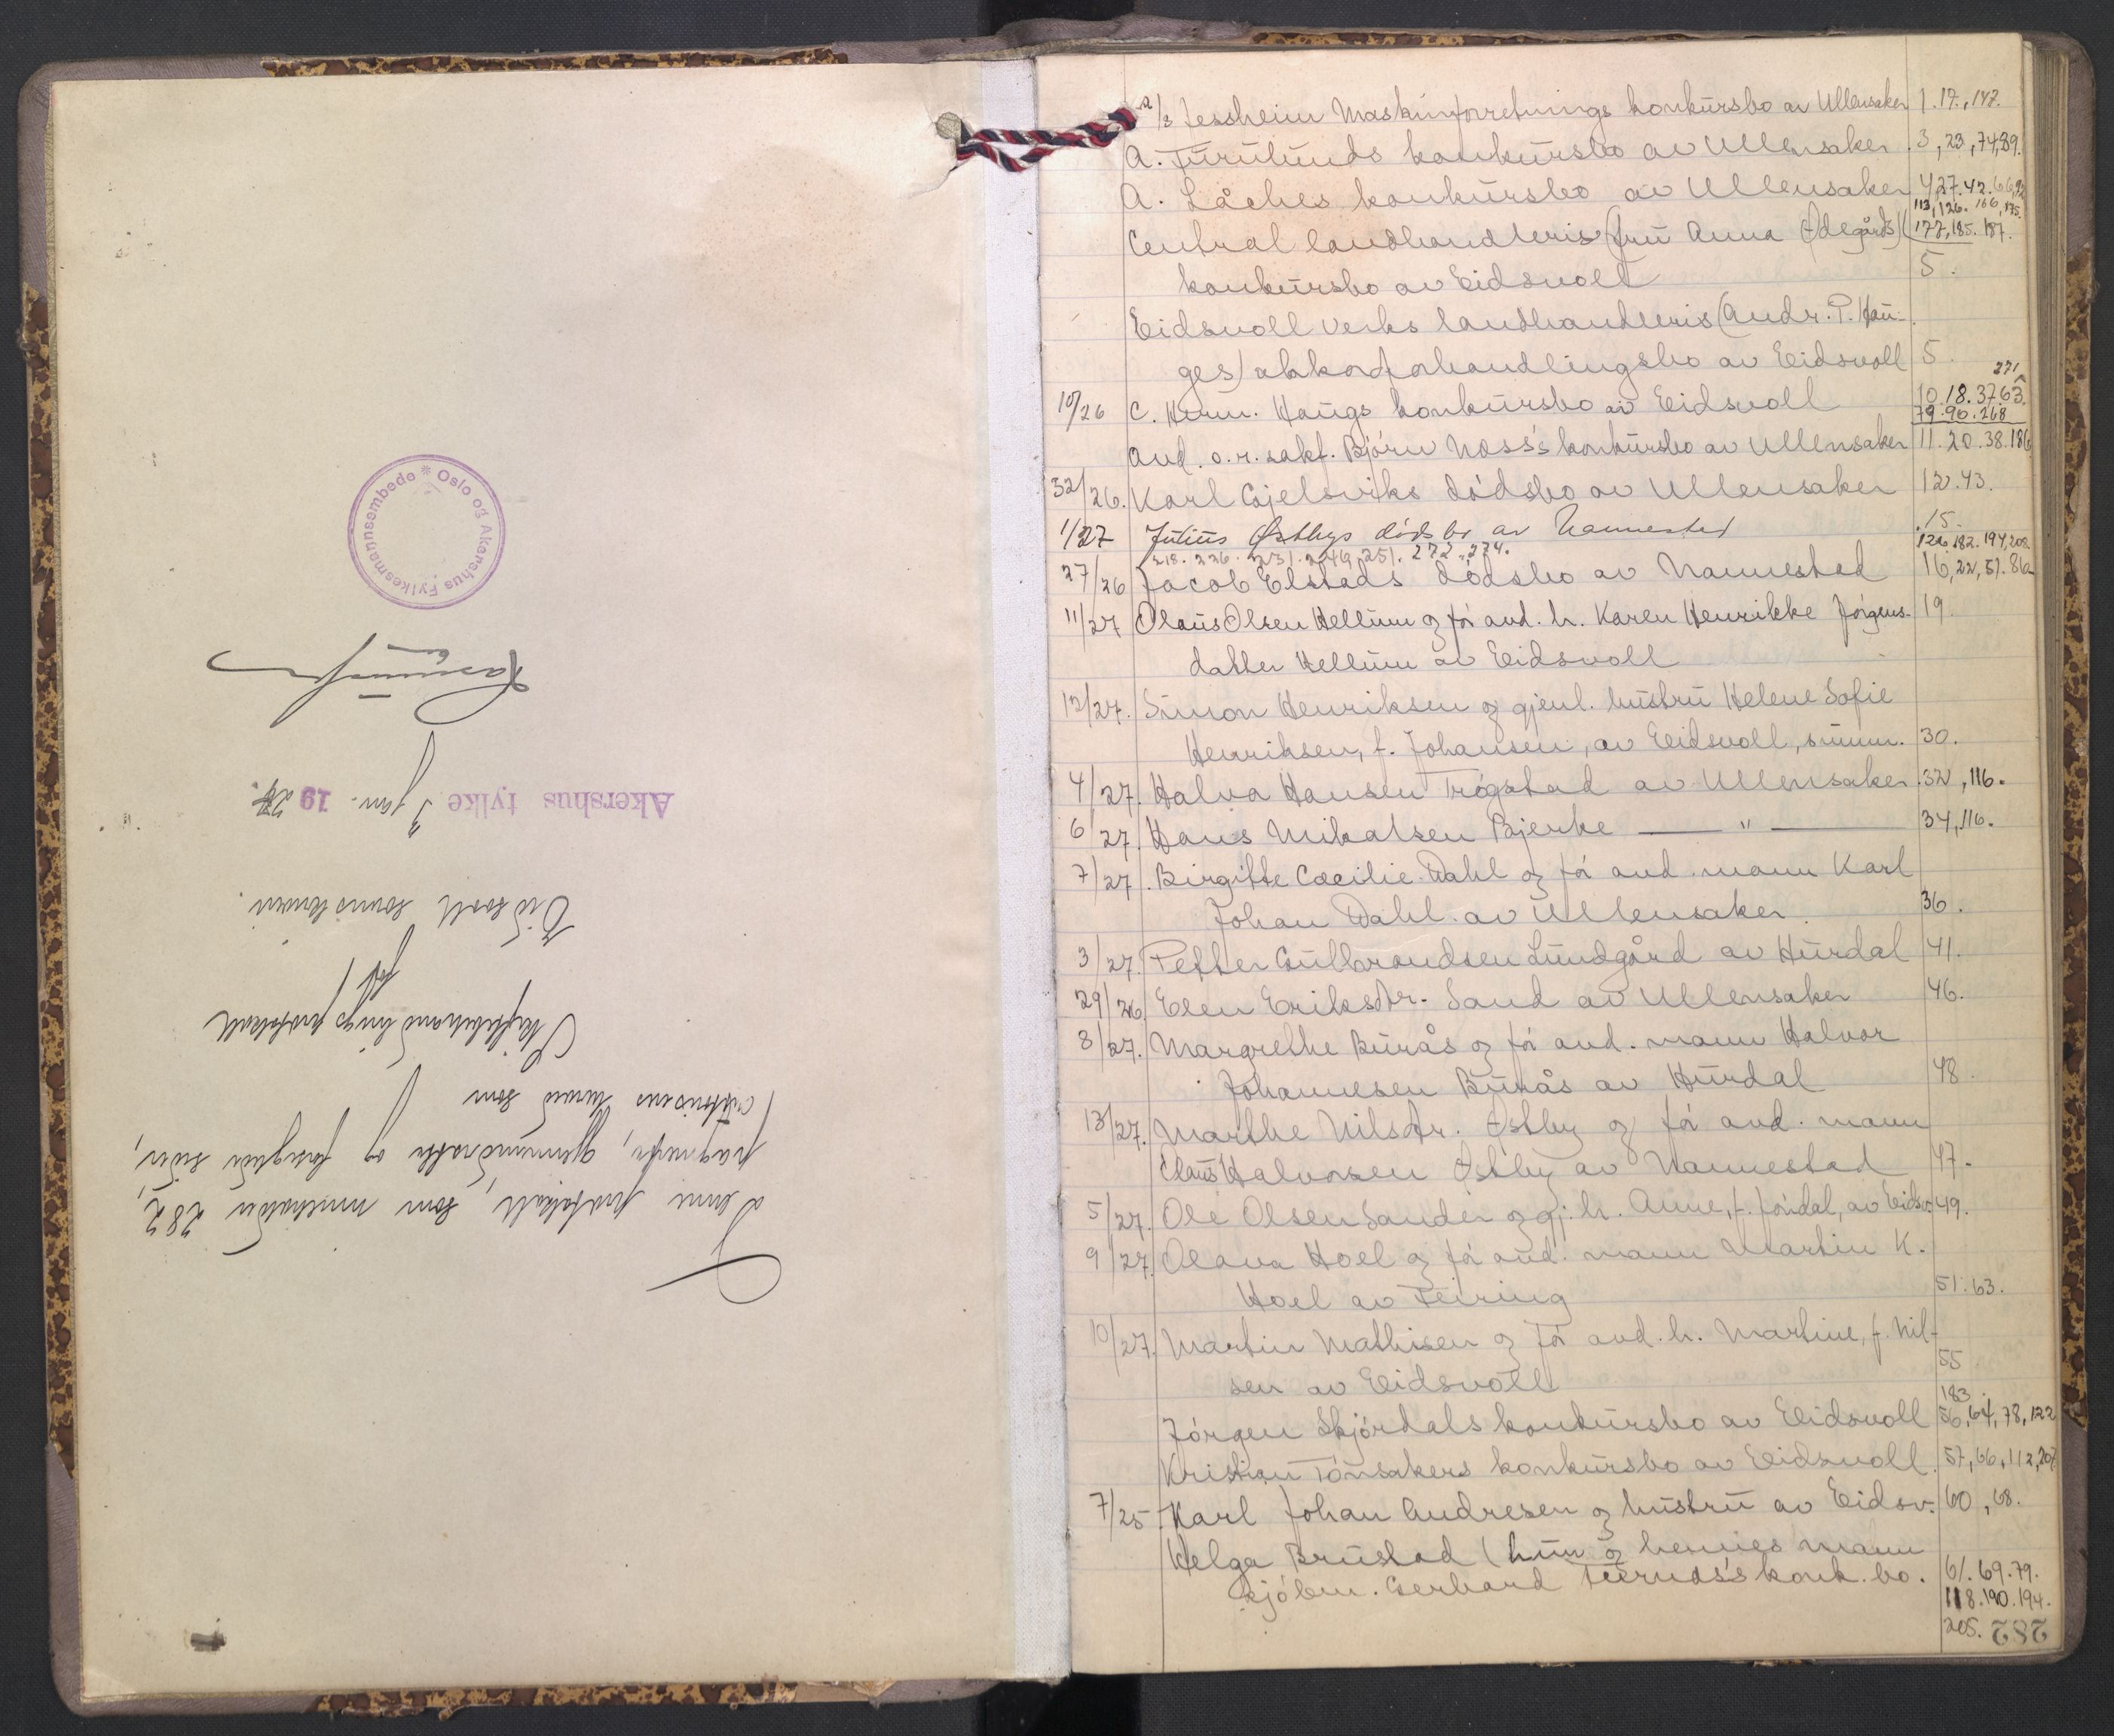 Denne protokoll, som inneholder 282
paginerte, gjennemdratte og forseglede sider,
autoriseres herved som
Skiftebehandlingsprotokoll
for
Eidsvoll sorenskriveri.
Akershus fylke 3 jan. 1927.
Oslo og Akershus Fylkesmannsembede
2/3 Jessheim Maskinforretnings konkursbo av Ullensaker 1.17.,147.
A. Furulunds konkursbo av Ullensaker 3, 23, 74, 89.
A. Låches konkursbo av Ullensaker 4,27.42.66,92
113, 126. 166, 175.
Central landhandleris (fru Anna Ødegårds) 177, 185. 187.
konkursbo av Eidsvoll 5.
Eidsvoll verks landhandleris (Andr. P. Hau-
ges) akkordforhandlingsbo av Eidsvoll 5.
271
10/26 C. Herm. Haugs konkursbo av Eidsvoll 10.18.37.63.
79.90.268
And. o.r.sakf. Bjórn Næss's konkursbo av Ullensaker 11.20.38.186
32/26. Karl Gjelsviks dódsbo av Ullensaker 12.43.
1/27 Julius Østbys dødsbo av Nannestad 15.
218. 226. 231. 246, 251. 272, 274. 126.182.194,208
27/26 Jacob Elstads dódsbo av Nannestad 16, 22, 57. 86
11/27 Olaus Olsen Hellum og fór avd. h. Karen Henrikke Jórgens- 19.
datter Hellum av Eidsvoll
12/27. Simon Henriksen og gjenl. hustru Helene Sofie
Henriksen, f. Johansen, av Eidsvoll, summ. 30.
4/27. Halva Hansen Trógstad av Ullensaker 32, 116.
6/27. Hans Mikalsen Bjerke — " — 34, 116.
7/27. Birgitte Cæcilie Dahl og fór avd. mann Karl
Johan Dahl av Ullensaker. 36.
3/27. Petter Gulbrandsen Lundgård av Hurdal 41.
29/26. Elen Eriksdtr. Sand av Ullensaker 46.
8/27. Margrethe Burås og fór avd. mann Halvor
Johannesen Burås av Hurdal 48.
13/27. Marthe Nilsdtr. Østby og fór avd. mann
Claus Halvorsen Østby av Nannestad 47.
5/27. Ole Olsen Sander og gj. h. Anne, f. Jóndal, av Eidsv. 49.
9/27. Olava Hoel og fór avd. mann Martin K.
Hoel av Feiring 51. 63.
10/27. Martin Mathisen og fór avd. h. Martine, f. Nil-
sen av Eidsvoll 55
183
Jórgen Skjórdals konkursbo av Eidsvoll 56, 64, 78, 122
Kristian Tónsakers konkursbo av Eidsvoll. 57, 66, 112, 207
7/25. Karl Johan Andresen og hustru av Eidsv. 60, 68.
Helga Brustad (hun og hennes mann
kjóbm. Gerhard konk.bo. 61. 69. 79.
118. 190. 194.
205. 282